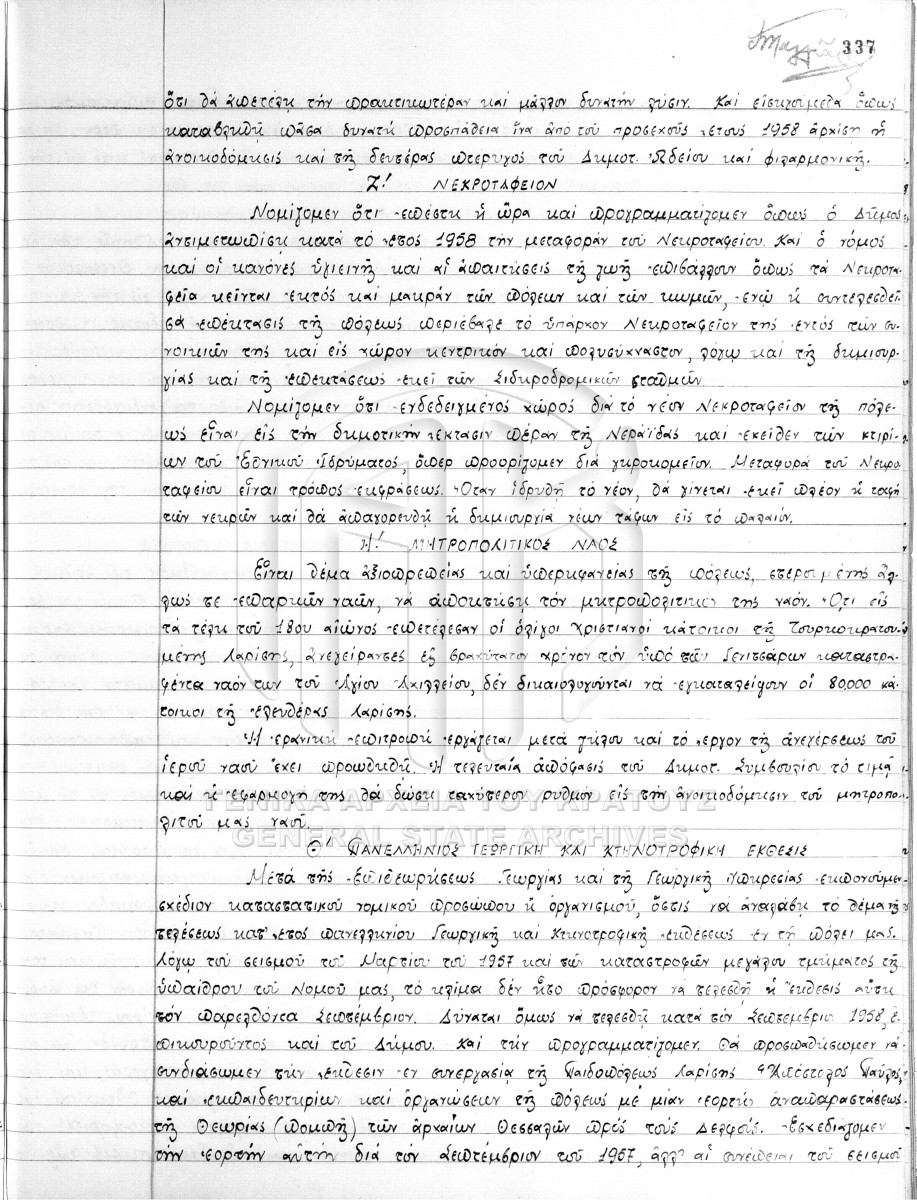 337
ὅτι θά ἀπετέλῃ τήν πρακτικωτέραν καί μᾶλλον δυνατήν λύσιν. Καί εἰσηγούμεθα ὅπως
καταβληθῇ πᾶσα δυνατή προσπάθεια ἵνα ἀπό τοῦ προσεχοῦς ἔτους 1958 ἀρχίσῃ ἡ
ἀνοικοδόμησις καί τῆς δευτέρας πτέρυγος τοῦ Δημοτ. Ὠδείου καί φιλαρμονικῆς.
Ζ! ΝΕΚΡΟΤΑΦΕΙΟΝ
Νομίζομεν ὅτι ἐπέστη ἡ ὥρα καί προγραμματίζομεν ὅπως ὁ Δῆμος
ἀντιμετωπίσῃ κατά τό ἔτος 1958 τήν μεταφοράν τοῦ Νεκροταφείου. Καί ὁ νόμος
καί οἱ κανόνες ὑγιεινῆς καί αἱ ἀπαιτήσεις τῆς ζωῆς ἐπιβάλλουν ὅπως τά Νεκροτα-
φεῖα κεῖνται ἐκτός καί μακράν τῶν πόλεων καί τῶν κωμῶν, ἐνῷ ἡ συντελεσθεῖ-
σα ἐπέκτασις τῆς πόλεως περιέβαλε τό ὑπάρχον Νεκροταφεῖον της ἐντός τῶν συ-
νοικιῶν της καί εἰς χῶρον κεντρικόν καί πολυσύχναστον, λόγῳ καί τῆς δημιουρ-
γίας καί τῆς ἐπεκτάσεως ἐκεῖ τῶν Σιδηροδρομικῶν σταθμῶν.
Νομίζομεν ὅτι ἐνδεδειγμένος χῶρος διά τό νέον Νεκροταφεῖον τῆς πόλε-
ως εἶναι εἰς τήν δημοτικήν ἔκτασιν πέραν τῆς Νεράϊδας καί ἐκεῖθεν τῶν κτιρί-
ων τοῦ Ἐθνικοῦ Ἱδρύματος, ὅπερ προορίζομεν διά γηροκομεῖον. Μεταφορά τοῦ Νεκρο
ταφείου εἶναι τρόπος ἐκφράσεως. Ὅταν ἱδρυθῇ τό νέον, θά γίνεται ἐκεῖ πλέον ἡ ταφή
τῶν νεκρῶν καί θά ἀπαγορευθῇ ἡ δημιουργία νέων τάφων εἰς τό παλαιόν.
Η! ΜΗΤΡΟΠΟΛΙΤΙΚΟΣ ΝΑΟΣ
Εἶναι θέμα ἀξιοπρεπείας καί ὑπερηφανείας τῆς πόλεως, στερουμένης ἄλ-
λως τε ἐπαρκῶν ναῶν, νά ἀποκτήσῃ τόν μητροπολιτικόν της ναόν. Ὅτι εἰς
τά τέλη τοῦ 18ου αἰῶνος ἐπετέλεσαν οἱ ὀλίγοι χριστιανοί κάτοικοι τῆς Τουρκοκρατου-
μένης Λαρίσης, ἀνεγείραντες ἐξ βραχύτατον χρόνον τόν ὑπό τῶν Γενιτσάρων καταστρα-
φέντα ναόν των τοῦ Ἁγίου Ἀχιλλείου, δέν δικαιολογοῦνται νά ἐγκαταλείψουν οἱ 80,000 κά-
τοικοι τῆς ἐλευθέρας Λαρίσης.
Ἡ ἐρανική ἐπιτροπή ἐργάζεται μετά ζήλου καί τό ἔργον τῆς ἀνεγέρσεως τοῦ
ἱεροῦ ναοῦ ἔχει προωθηθῆ. Ἡ τελευταία ἀπόφασις τοῦ Δημοτ. Συμβουλίου τό τιμᾷ
καί ἡ ἐφαρμογή της θά δώσῃ ταχύτερον ρυθμόν εἰς τήν ἀνοικοδόμησιν τοῦ μητροπο-
λιτοῦ μας ναοῦ.
ΓΕΝΙΚΑ ΑΡΧΕΙΑ ΤΟΥ ΚΡΑΤΟΥΣ
GENERAL STATE ARCHIVES
Θ! ΠΑΝΕΛΛΗΝΙΟΣ ΓΕΩΡΓΙΚΗ ΚΑΙ ΚΤΗΝΟΤΡΟΦΙΚΗ ΕΚΘΕΣΙΣ
Μετά τῆς Ἐπιθεωρήσεως Γεωργίας καί τῆς Γεωργικῆς Ὑπηρεσίας ἐκπονοῦμεν
σχέδιον καταστατικοῦ νομικοῦ προσώπου ἤ ὀργανισμοῦ, ὅστις νά ἀναλάβῃ τό θέμα τῆς
τελέσεως κατ' ἔτος πανελληνίου Γεωργικῆς καί Κτηνοτροφικῆς ἐκθέσεως ἐν τῇ πόλει μας.
Λόγῳ τοῦ σεισμοῦ τοῦ Μαρτίου τοῦ 1957 καί τῶν καταστροφῶν μεγάλου τμήματος τῆς
ὑπαίθρου τοῦ Νομοῦ μας, τό κλῖμα δέν ἦτο πρόσφορον νά τελεσθῇ ἡ ἔκθεσις αὕτη
τόν παρελθόντα Σεπτέμβριον. Δύναται ὅμως νά τελεσθῇ κατά τόν Σεπτέμβριον 1958, ἐ-
πικουροῦντος καί τοῦ Δήμου. Καί τήν προγραμματίζομεν. Θά προσπαθήσωμεν νά
συνδιάσωμεν τήν ἔκθεσιν ἐν συνεργασίᾳ τῆς Παιδοπόλεως Λαρίσης "Ἀπόστολος Παῦλος"
καί ἐκπαιδευτηρίων καί ὀργανώσεων τῆς πόλεως μέ μίαν ἑορτήν ἀναπαραστάσεως
τῆς Θεωρίας (πομπῆς) τῶν ἀρχαίων Θεσσαλῶν πρός τούς Δελφούς. Ἐσχεδιάζομεν
τήν ἑορτήν αὐτήν διά τόν Σεπτέμβριον τοῦ 1957, ἀλλ' αἱ συνέπειαι τοῦ σεισμοῦ